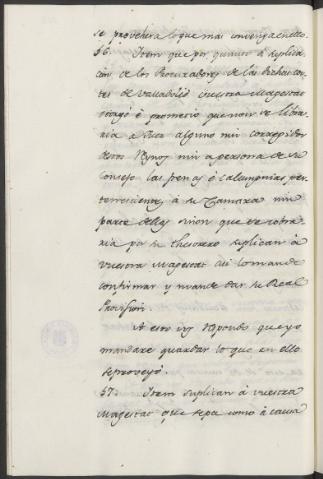 se proveherá lo que mas convenga en ello.
56. Item que por quanto á suplica-
cion de los Procuradores de las dichas cor-
tes de Valladolid vuestra Magestad
otorgó é prometió que non se libra-
ria a Juez alguno nin corregidor
destos Reynos nin a persona de su
Consejo las penas é calumpnias per-
tenescientes á su Camara nin
parte dellas sinon que se cobra-
ria por su thesorero suplican á
vuestra Magestad asi lo mande
confirmar y mande dar su Real
Provision.
A esto vos respondo que yo
mandaré guardar lo que en ello
se proveyó.
57. Item suplican á vuestra
Magestad que sepa como á causa